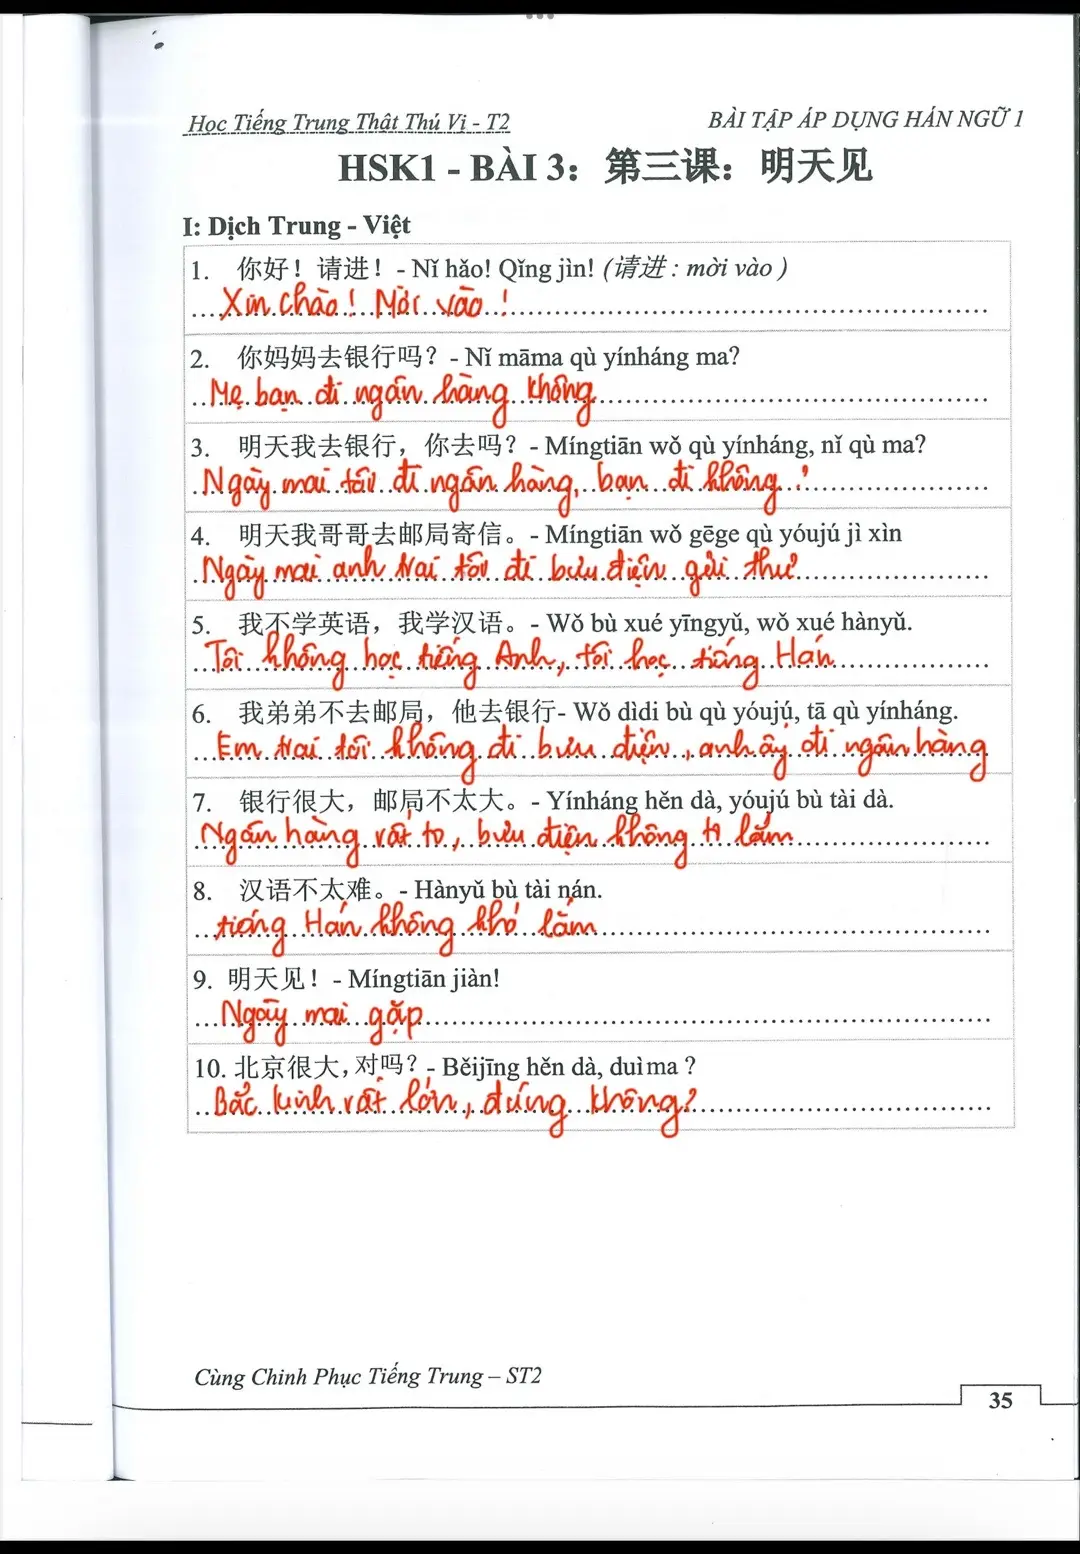 Học Tiếng Trung Thật Thú Vị - T2
BÀI TẬP ÁP DỤNG HÁN NGỮ 1
HSK1 - BÀI 3：第三课：明天见
I: Dịch Trung - Việt
1. 你好！请进！- Nǐ hǎo! Qǐng jìn! (请进 : mời vào )
Xin chào! Mời vào!
2. 你妈妈去银行吗？- Nǐ māma qù yínháng ma?
Mẹ bạn đi ngân hàng không
3. 明天我去银行，你去吗？- Míngtiān wǒ qù yínháng, nǐ qù ma?
Ngày mai tôi đi ngân hàng, bạn đi không?
4. 明天我哥哥去邮局寄信。- Míngtiān wǒ gēge qù yóujú jì xìn
Ngày mai anh trai tôi đi bưu điện gửi thư
5. 我不学英语，我学汉语。- Wǒ bù xué yīngyǔ, wǒ xué hànyǔ.
Tôi không học tiếng Anh, tôi học tiếng Hán
6. 我弟弟不去邮局，他去银行- Wǒ dìdi bù qù yóujú, tā qù yínháng.
Em trai tôi không đi bưu điện, anh ấy đi ngân hàng
7. 银行很大，邮局不太大。- Yínháng hěn dà, yóujú bù tài dà.
Ngân hàng rất to, bưu điện không to lắm
8. 汉语不太难。- Hànyǔ bù tài nán.
tiếng Hán không khó lắm
9. 明天见！- Míngtiān jiàn!
Ngày mai gặp
10. 北京很大，对吗？- Běijīng hěn dà, duì ma ?
Bắc kinh rất lớn, đúng không?
Cùng Chinh Phục Tiếng Trung – ST2
35